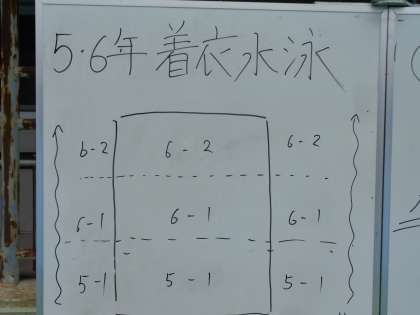 5・6年 着衣水泳
6-2 6-2 6-2
6-1 6-1 6-1
5-1 5-1 5-1